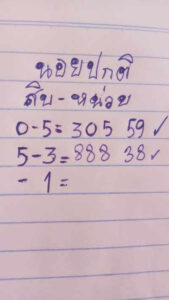 นอยปกติ
สิบ - หน่วย
0-5= 305 59 ✓
5-3= 888 38 ✓
- 1 =